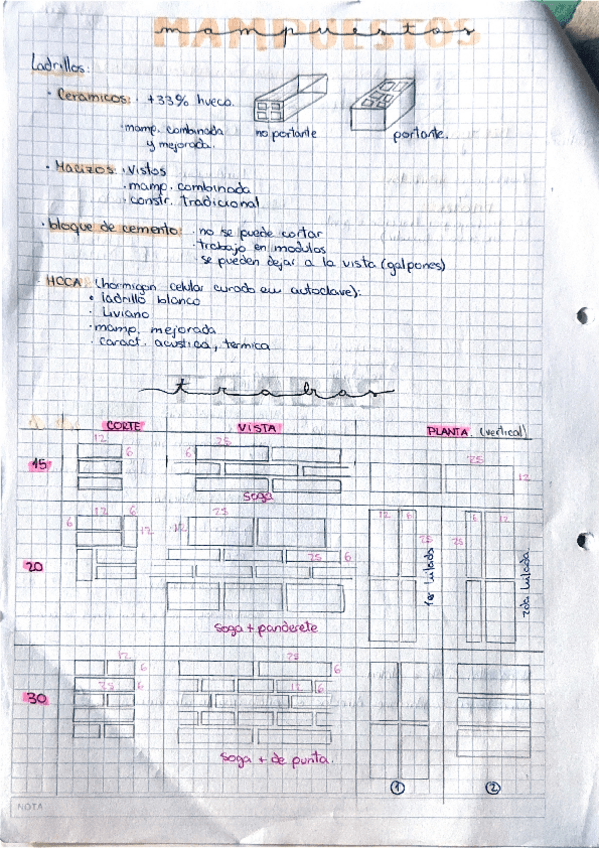 mampuestos
MAMPUESTOS
Ladrillos:
· Cerámicos: · +33% hueco.
· mamp. combinada
y mejorada.
no portante
portante.
· Macizos: · Vistos
· mamp. combinada
· constr. tradicional
· bloque de cemento: · no se puede cortar
· trabajo en modulos
· se pueden dejar a la vista (galpones)
· HCCA: (hormigon celular curado en autoclave):
• ladrillo blanco
· Liviano
· mamp. mejorada
· caract. acustica, termica
trabas
TRABAS
CORTE VISTA PLANTA (vertical)
15
12 6
25 6
soga
25 12
20
12 6 6 12
25 12
25 6
soga + panderete
12 6 25
1er hilada
6 12 25
2da hilada
30
12 6
25 6
25 6
12 6
soga + de punta.
①
②
NOTA